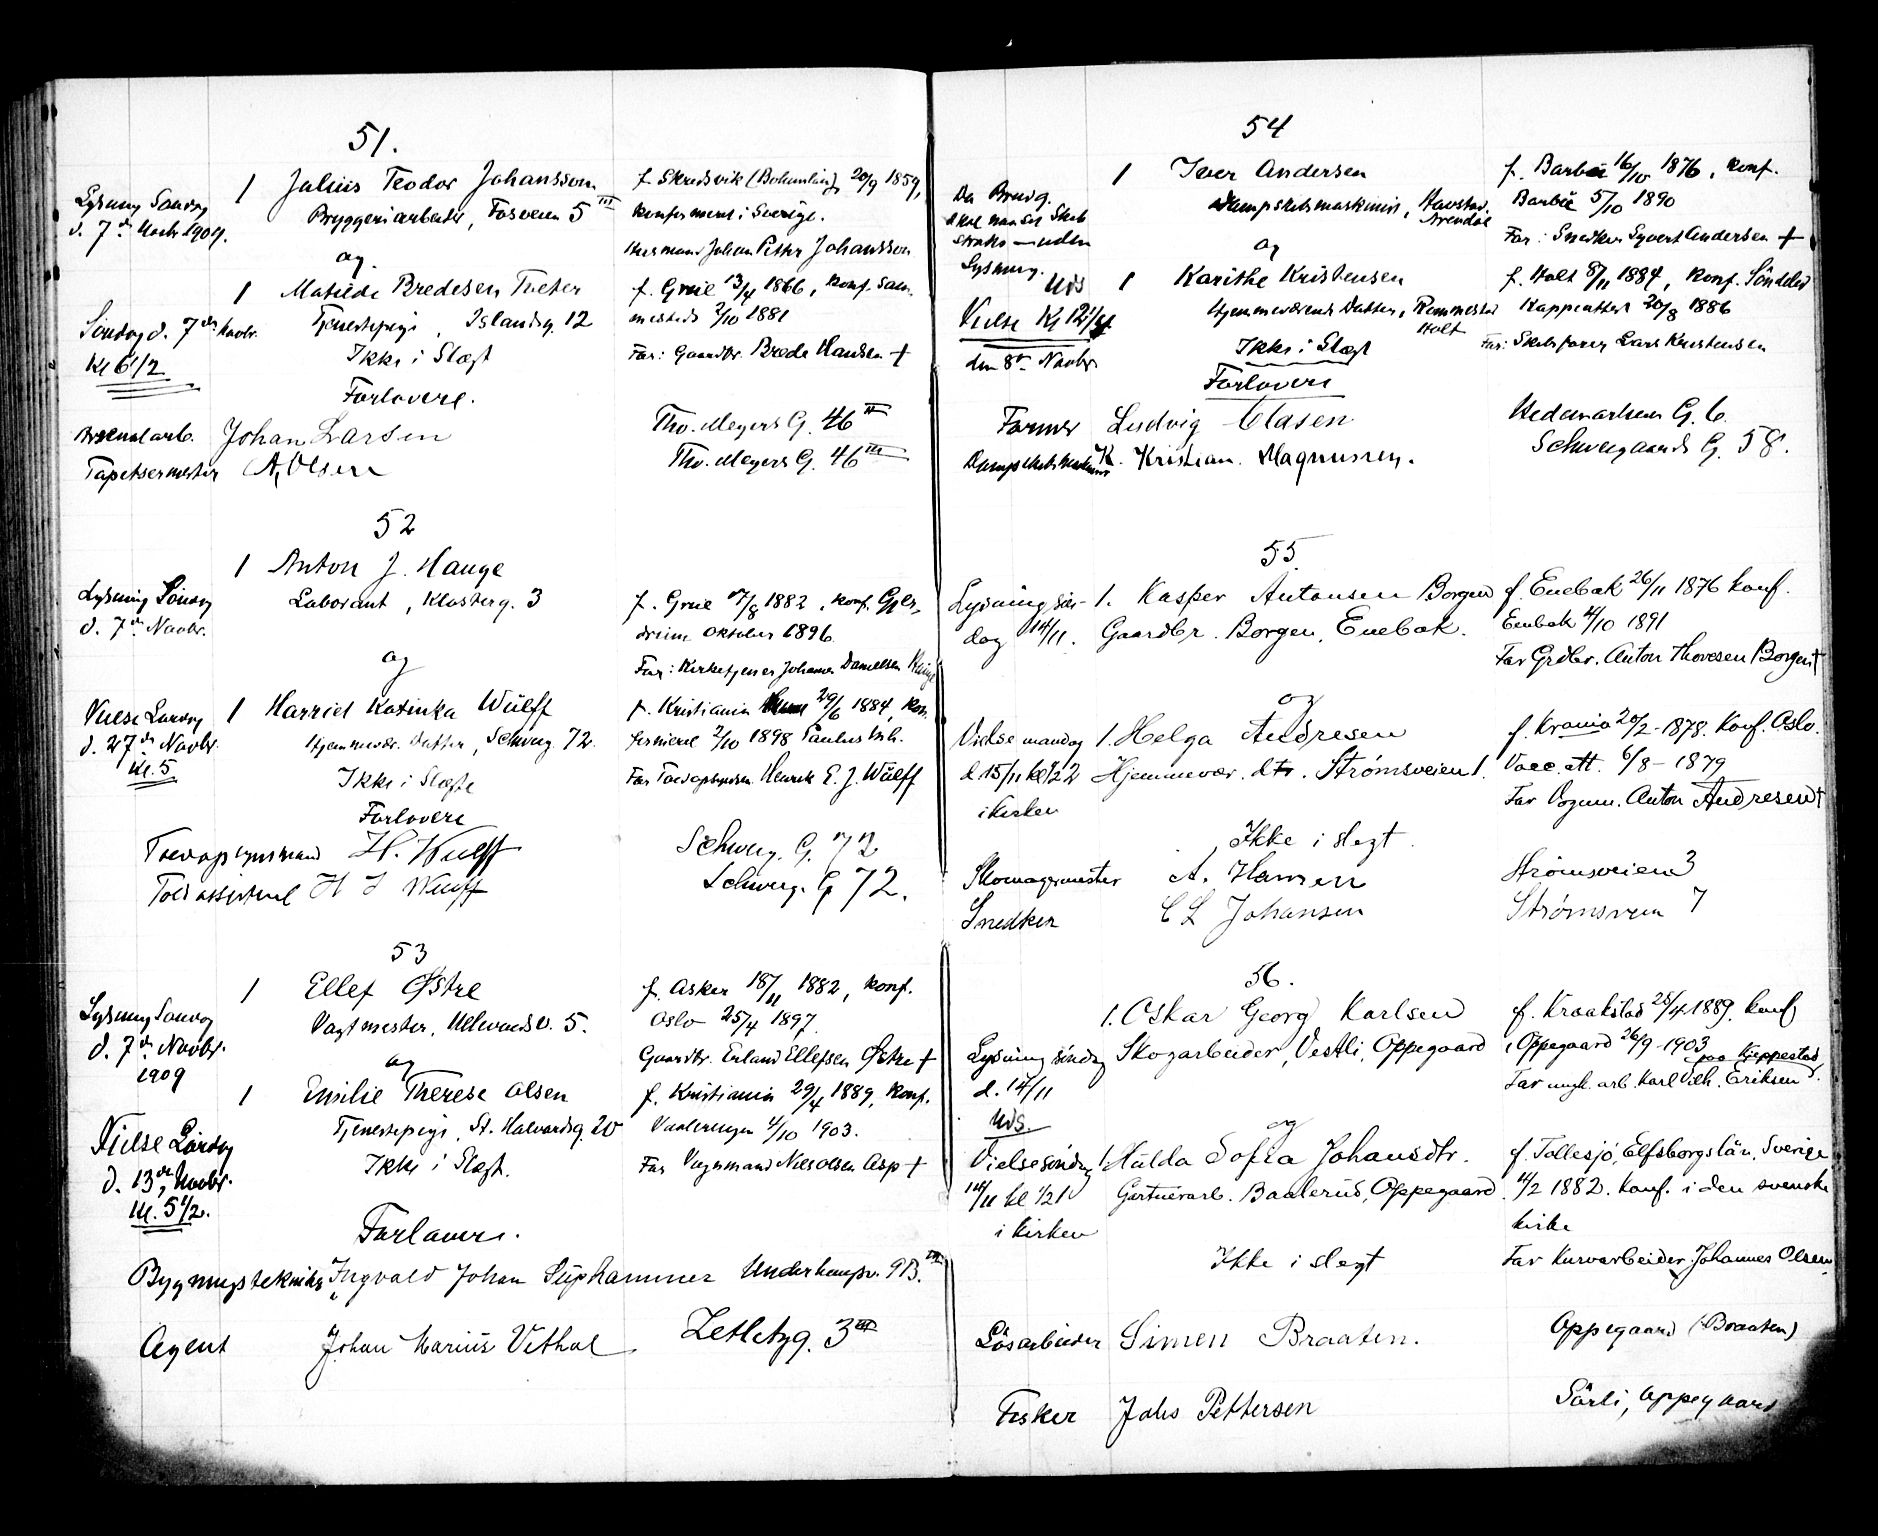 51.
Lysning Søndag d. 7de Novbr 1909.
1 Julius Teodor Johansson
Bryggeriarbeider, Fosveien 5 III
f. Skredsvik (Bohuslän) 20/9 1859,
konfirmeret i Sverige.
Husmand Johan Petter Johansson
og
1 Matilde Bredesen Tveter
Tjenestepige, Islandsg. 12
Ikke i Slægt
f. Grue 13/4 1866, konf. sam-
mesteds 2/10 1881
Far: Gaardbr. Brede Hansen +
Søndag d. 7de Novbr.
Kl 6 1/2
Forlovere.
Arsenalarb. Johan Larsen Tho. Meyers G. 46 IV
Tapetsermester A. Olsen Tho. Meyers G. 46 III
52
Lysning Søndag
d. 7de Novbr.
1 Anton J. Hauge
Laborant, Klosterg. 3
f. Grue 17/8 1882, konf.
Oktober 1896
Far: Kirketjener Johannes Danielsen
og
Vielse Lørdag
d. 27de Novbr.
Kl. 5
1 Harriet Katinka Wülff
Hjemmevær. Datter, Schweig. 72.
Ikke i Slægt
f. Kristiania 29/6 1884, kon-
firmeret 2/10 1898 Paulus
Far Henrik E. J. Wülff
Forlovere
H. Wulff Schweig. G. 72
Toldassistent H J Wulff Schweig. G 72.
53
Lysning Søndag
d. 7de Novbr.
1909
1 Ellef Østre
Vagtmester, Ullevaardsv. 5.
f. Asker 18/11 1882, konf.
Oslo 25/4 1897
Gaardbr. Erland Ellefsen Østre +
og
1 Emilie Therese Olsen
Tjenestepige, St. Halvardsg. 20
Ikke i Slægt.
f. Kristiania 29/4 1889, konf.
Vaalerengen 4/10 1903.
Far Vognmand Nils Olsen Asp +
Vielse Lørdag
d. 13de Novbr.
Kl. 5 1/2.
Forlovere.
Bygningstekniker Ingvald Johan Suphammer Underhaugsv. 9B. III
Agent Johan Marius Vethal Zetlitzg. 3 III
54
Da Brudg.
skal
straks — uden
Lysning.
Uds
1 Iver Andersen
Dampskibsmaskinist, Havstad, Arendal
f. Barbu 16/10 1876, konf.
Barbu 5/10 1890
Far: Snedker Syvert Andersen +
og
1 Karithe Kristensen
Hjemmeværende Datter, Holt
Ikke i Slægt
f. Holt 8/11 1884, konf. Söndeled
Koppeattest 20/8 1886
Far: Skibsfører Lars Kristensen
Vielse Kl 12 1/4
den 8de Novbr
Forlovere
Former Ludvig Clasen Hedemarkens G. 6.
K. Kristian Magnussen. Schweigaards G. 58.
55.
Lysning søn-
dag 14/11.
1. Kasper Antonsen Borgen
Gaardbr. Borgen, Enebak.
f. Enebak 26/11 1876 konf.
Enebak 4/10 1891
Far Grdbr. Anton Thoresen Borgen +
og
Vielse mandag
d. 15/11 kl 1/2 2
i kirken
1. Helga Andresen
Hjemmevær. dtr. Strømsveien 1.
f. Krania 20/2 - 1878. Konf. Oslo.
Vacc. att. 6/8 - 1879
Far Vognm. Anton Andresen +
Ikke i slegt
Skomagermester A. Hansen Strømsveien 3
Snedker C L Johansen Strømsveien 7
56.
Lysning søndag
d. 14/11
Uds.
1. Oskar Georg Karlsen
Skogarbeider, Vestli, Oppegaard
f. Kraakstad 25/4 1889, konf
i Oppegaard 26/9 - 1903
paa Kjeppestad
Far myk. arb. Karl Vilh. Eriksen
og
Vielse søndag
14/11 kl 1/2 1
i kirken
1. Hulda Sofia Johansdtr.
Gartnerarb. Baalerud, Oppegaard
f. Tollesjö, Elfsborgslän, Sverige
4/2 1882. Konf. i den svenske
kirke
Far Kurvarbeider Johannes Olsen.
Ikke i slegt
Løsarbeider Simen Braaten. Oppegaard (Braaten)
Fisker Johs Pettersen Sörli, Oppegaard